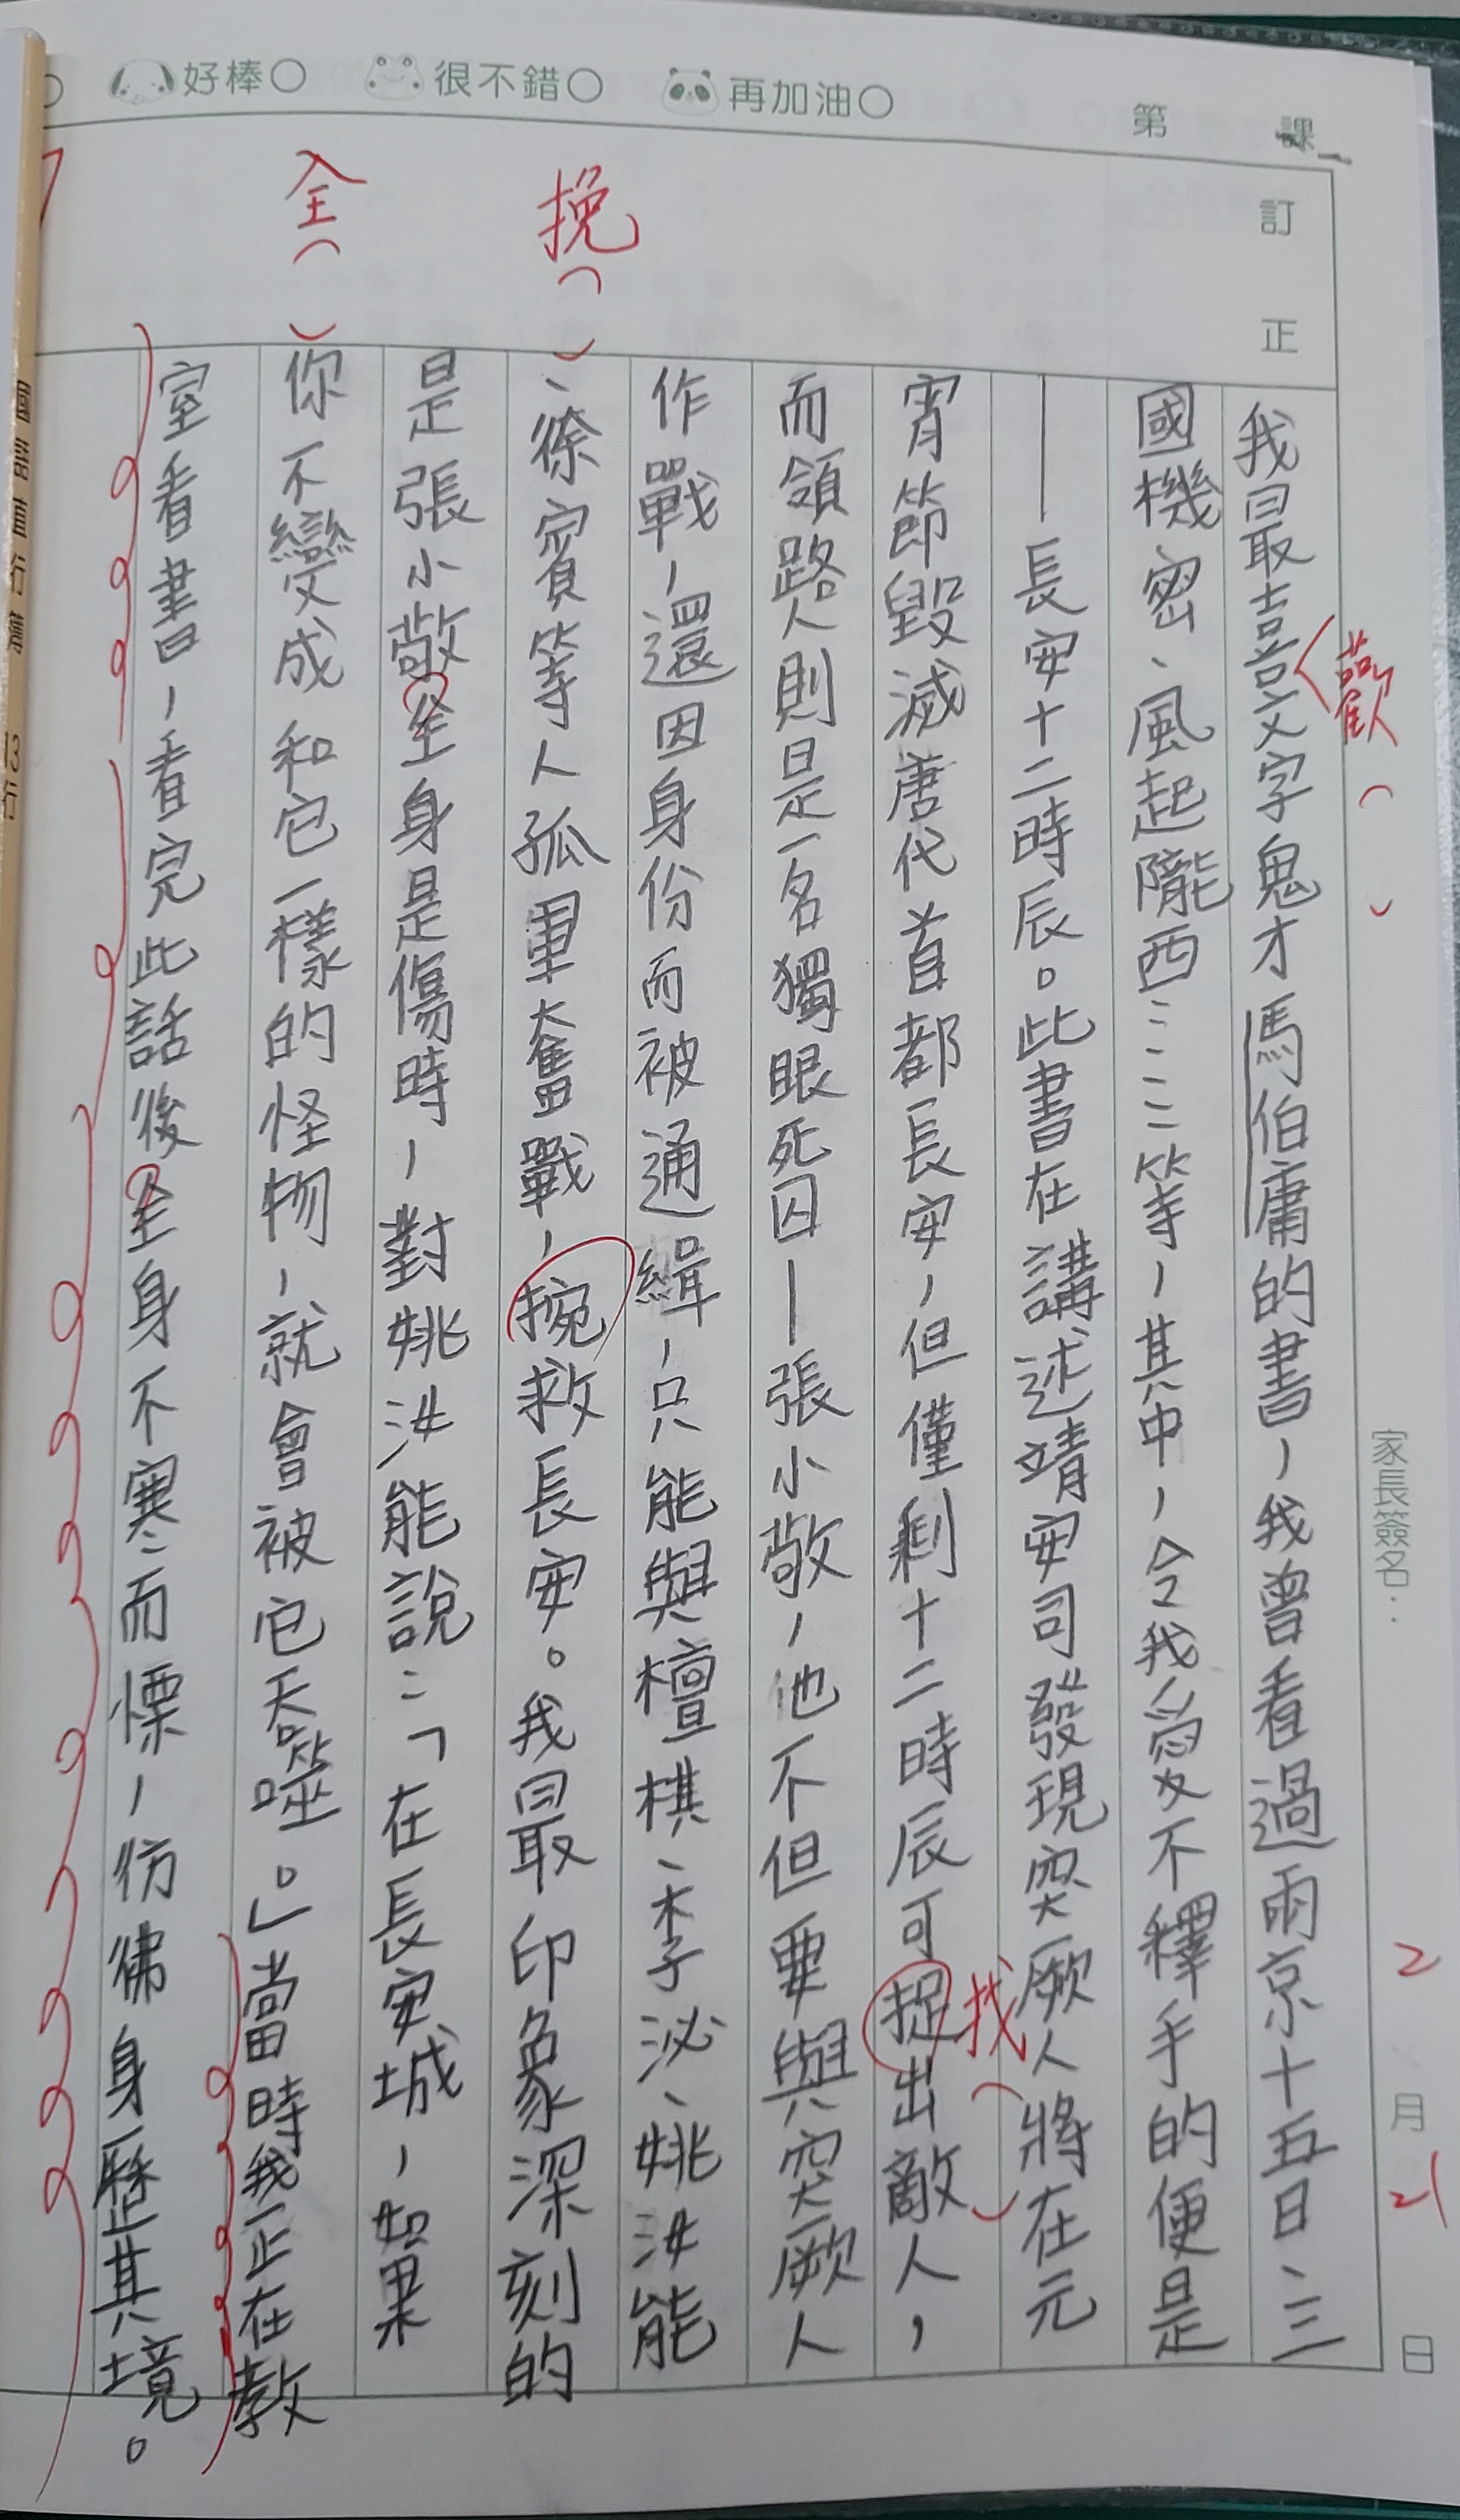 好棒○ 很不錯○ 再加油○ 第 課
訂正
家長簽名：
2月21日
歡（ ）
我最喜文字鬼才馬伯庸的書，我曾看過兩京十五日、三
國機密、風起隴西……等，其中，令我愛不釋手的便是
——長安十二時辰。此書在講述靖安司發現突厥人將在元
找（ ）
宵節毀滅唐代首都長安，但僅剩十二時辰可捉出敵人，
而領路人則是一名獨眼死囚—張小敬，他不但要與突厥人
作戰，還因身份而被通緝，只能與檀棋、李泌、姚汝能
挽（ ）
、徐賓等人孤軍奮戰，捥救長安。我最印象深刻的
是張小敬全身是傷時，對姚汝能說：「在長安城，如果
全（ ）
你不變成和它一樣的怪物，就會被它吞噬。」當時我正在教
室看書，看完此話後全身不寒而慄，彷彿身歷其境。
國語直行簿 13行